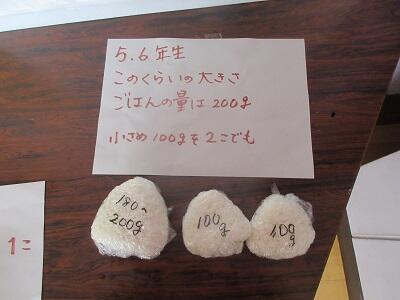 5.6年生
このくらいの大きさ
ごはんの量は200g
小さめ100gを2こでも
180〜
200g
100g
100
g
1こ